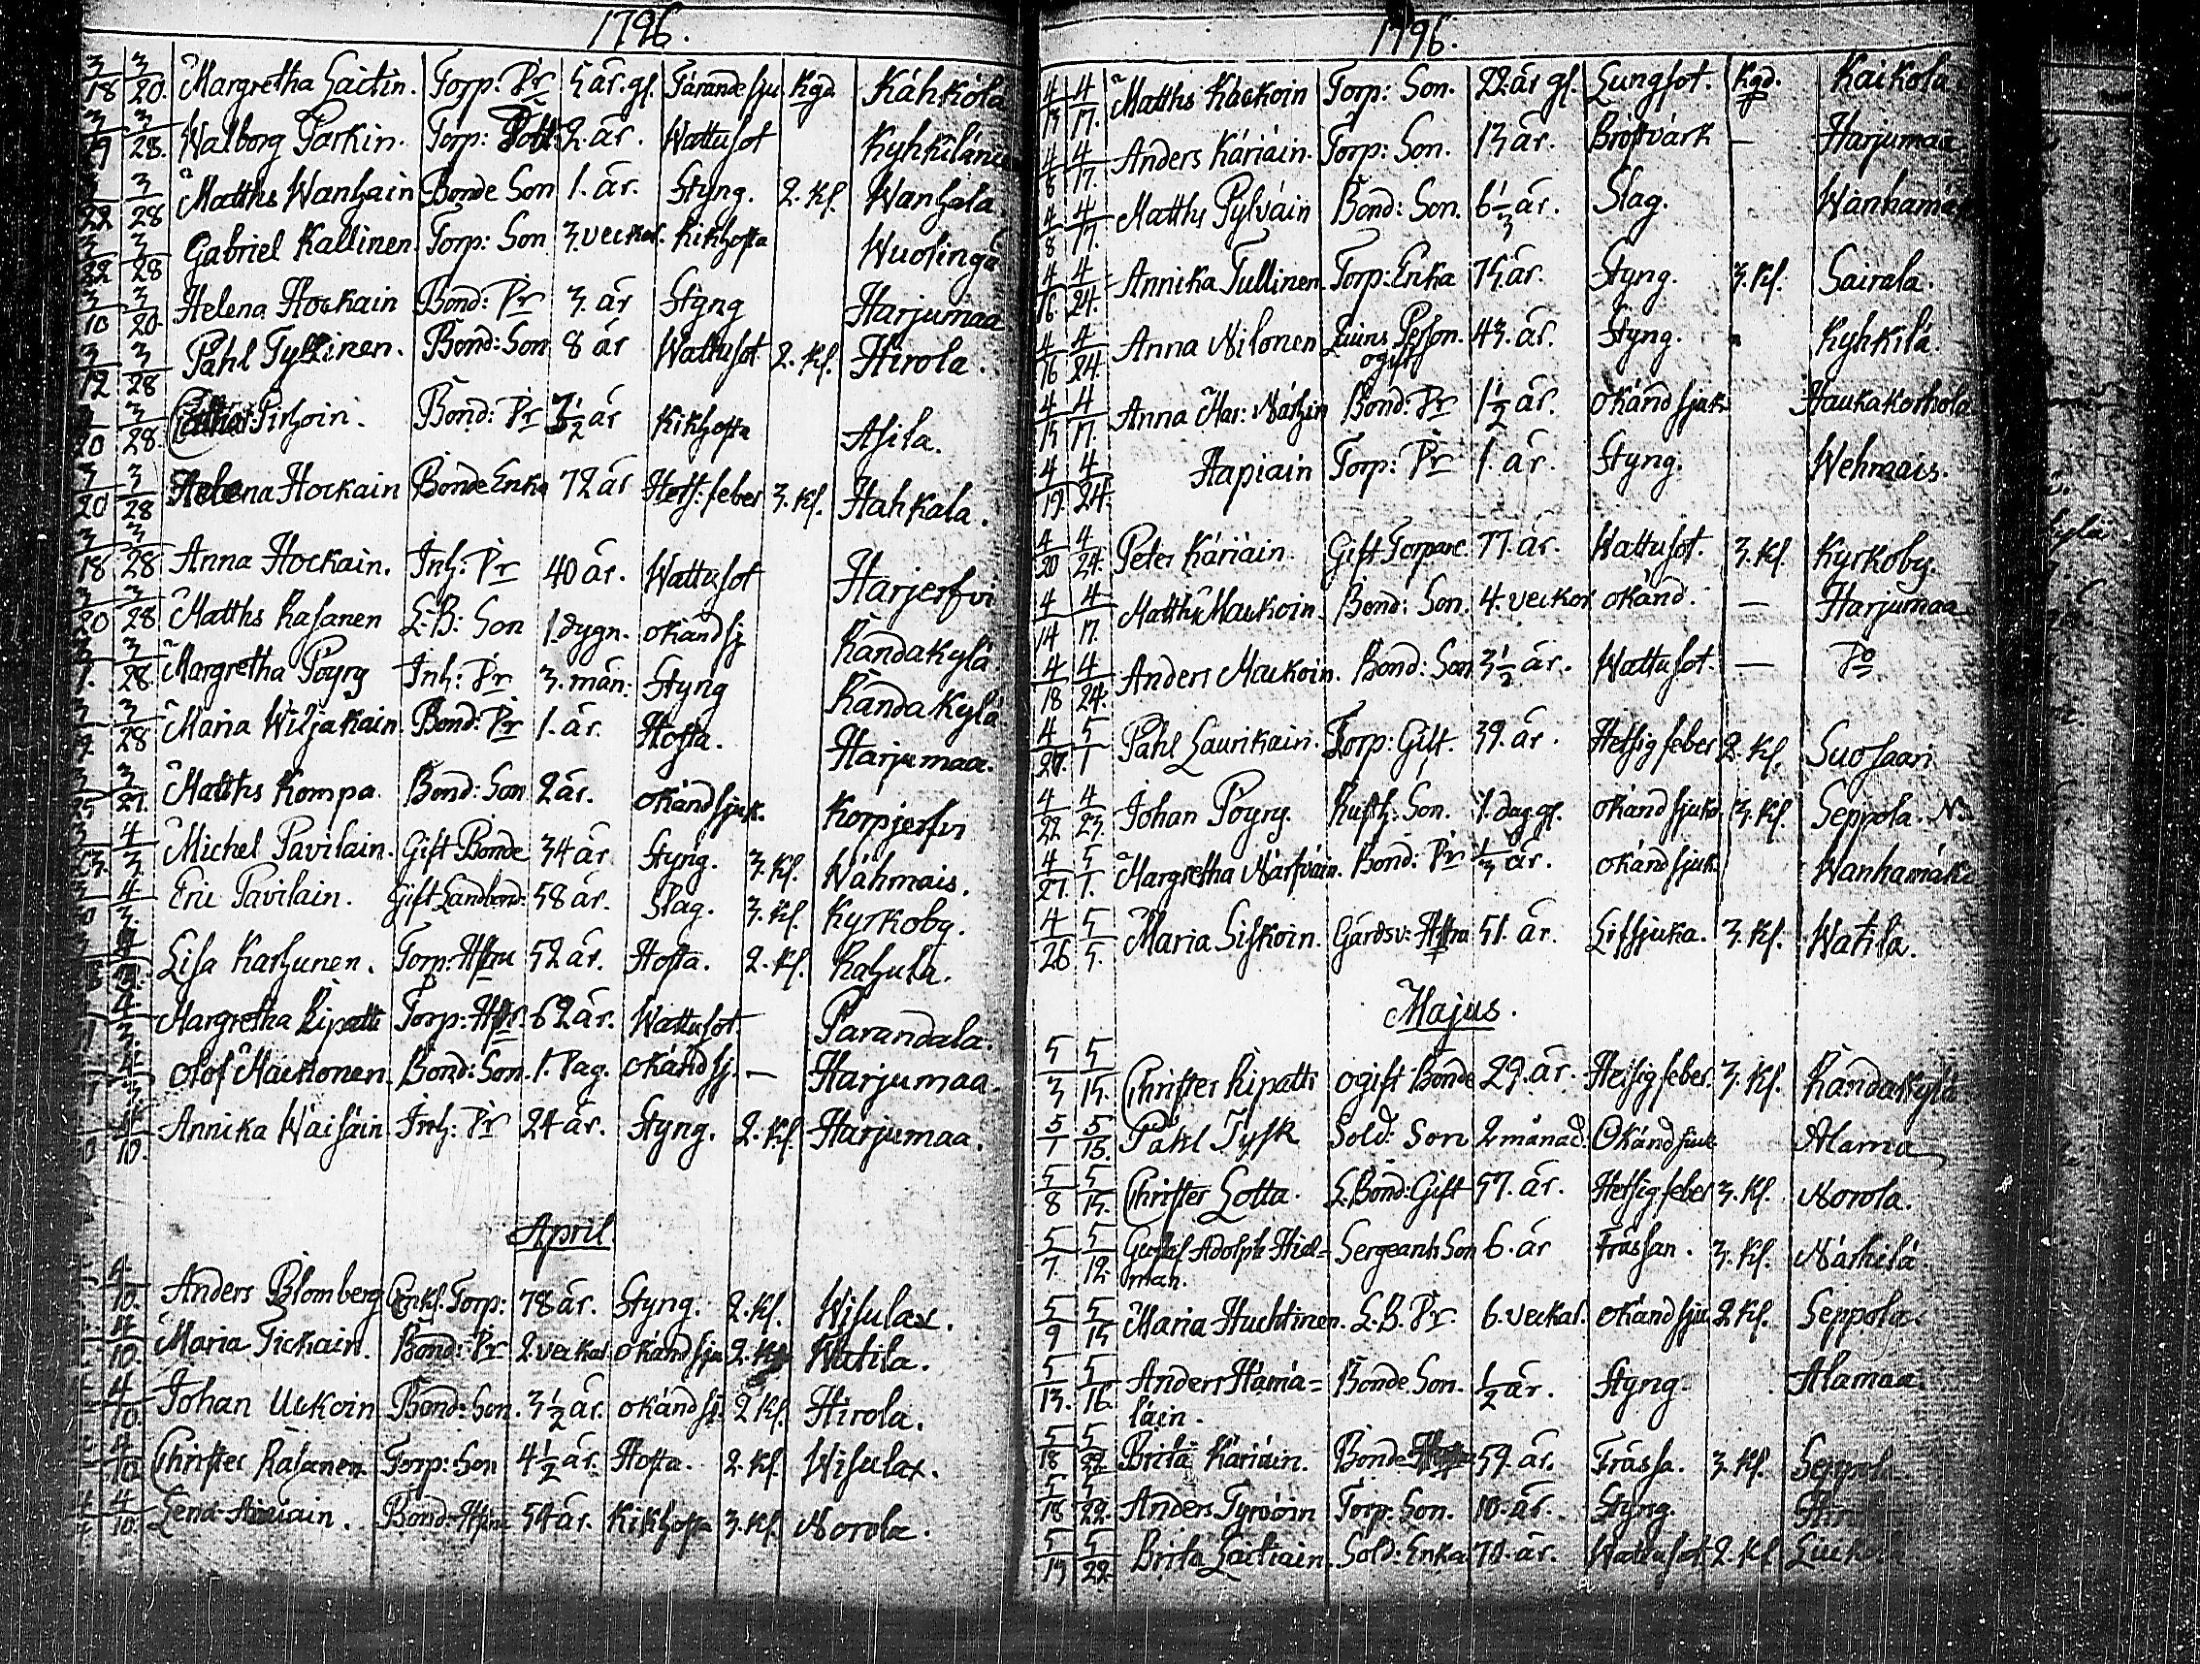 1796.
3/18 3/20. Margretha Laitin. Torp: Pr 5 år. gl. Tärande sju Kgd Kähköla
3/19 3/28. Walborg Parkin. Torp: 2. år. Wattusot Kyhkilänie
3/22 3/28 Matths Wanhain Bonde Son 1. år. Styng. 2. Kl. Wanhala.
3/22 3/28 Gabriel Kallinen. Torp: Son 3. veckor. Kikhosta Wuolinga
3/10 3/20. Helena Hockain Bond: Pr 3. år Styng Harjumaa
3/12 3/28 Påhl Tyllinen. Bond: Son 8 år Wattusot 2. Kl. Hirola.
20 3/28. Pirhoin. Bond: Pr 3 1/2 år Kikhosta Asila.
3/20 3/28 Helena Hockain Bonde Enka 72 år Hets: feber 3. Kl. Hahkala.
3/18 3/28 Anna Hockain. Inh: Pr 40 år. Wattusot Harjerfvi
3/20 3/28 Matths Rasanen L: B: Son 1. dygn. okänd sj Randakylä
3/7. 3/28 Margretha Pöyry Inh: Pr 3. mån: Styng Randakylä
3/28 Maria Wiljakain. Bond: Pr 1. år. Hosta. Harjumaa.
3/25 3/27. Matths Kompa. Bond: Son 2 år. okänd sjuk. Korpjerfvi
4/3. Michel Pavilain. Gift Bonde 34 år. Styng. 3. Kl. Wåhmais.
4/3. Eric Pavilain. Gift Landbond: 58 år. Slag. 3. Kl. Kyrkoby.
Lisa Karhunen. Torp: Hstru 52 år. Hosta. 2. Kl. Rahula.
4/3. Margretha Ripatti Torp: Hstr. 62 år. Wattusot. Parandala.
4/3. Olof Mackonen. Bond: Son. 1. Dag. okänd sj. — Harjumaa.
4/10. Annika Wäisäin Inh: Pr 24 år. Styng. 2. Kl. Harjumaa.
April.
4/10. Anders Blomberg Enkl. Torp: 78 år. Styng. 2. Kl. Wisulax.
4/10. Maria Tickain. Bond: Pr 2. veckor. okänd sju 2. Kl Watila.
4/10. Johan Uckoin Bond: Son. 3 1/2 år. okänd sj. 2 Kl. Hirola.
4/10. Christer Rasanen Torp: Son 4 1/2 år. Hosta. 2. Kl. Wisulax.
4/10. Lena Bond: Hstru 54 år. Kikhosta 3. Kl. Norola.
1796.
4/13 4/17. Matths Käckoin Torp: Son. 22. år gl. Lungsot. Kgd. Kaikola
4/8 4/17. Anders Käriäin. Torp: Son. 13 år. Bröstvärk — Harjumaa
4/8 4/17. Matths Pylväin Bond: Son. 6 1/3 år. Slag. Wanhamäki
4/16. 4/24. Annika Tullinen Torp: Enka 75. år. Styng. 3. Kl. Sairala.
4/16 4/24. Anna Nilonen Person. 43. år. Styng. Kyhkilä.
ogift
4/15 4/17. Anna Mar: Närhin Bond: Pr 1 1/2 år. okänd sjuk Haukakorhola
4/19. 4/24. Hapiain Torp: Pr 1. år. Styng. Wehmais.
4/20 4/24. Peter Käriäin. Gift Torpare 77. år. Wattusot. 3. Kl. Kyrkoby.
4/14 4/17. Matths Mackoin. Bond: Son. 4. veckor okänd. — Harjumaa
4/18 4/24. Anders Mackoin. Bond: Son 3 1/2 år. Wattusot. — Do
4/27. 5/1 Pahl Laurikain. Torp: Gift. 39. år. Hetsig feber 2. Kl. Suosaari
4/22. 4/23. Johan Pöyry. Rusth: Son. 1. dag gl. okänd sjuk. 3. Kl. Seppola.
4/27. 5/1. Margretha Närfväin. Bond: Pr 1/3 år. okänd sjuk. Wanhamäki
4/26 5/5. Maria Siskoin. Gårdsv: Hstru 51. år. Lissjuka. 3. Kl. Watila.
Majus.
5/3 5/15. Christer Ripatti ogift Bonde 29. år. Hetsig feber. 3. Kl. Randakylä
5/1 5/15. Påhl Tysk Sold: Son 2 månad: Okänd siuk Alama
5/8 5/15. Christer Lotta. L. Bond: Gift 57. år. Hetsig feber 3. Kl. Norola.
5/7. 5/12. Gustaf Adolph Hiel= Sergeants Son 6. år Frässan. 3. Kl. Närhilä.
man.
5/9 5/15 Maria Huchtinen. L. B. Pr. 6. veckor. okänd sju 2 Kl. Seppola.
5/13. 5/16. Anders Hämä= Bonde Son. 1/2 år. Styng. Alamaa.
läin.
5/18 5/22 Brita Käriäin. Bonde 59. år. Frässa. 3. Kl. Seppola
5/18 5/22. Anders Tyrvöin Torp: Son. 10. år. Styng.
5/15 5/22. Brita Laitiain. Sold: Enka 70. år. Wattusot 2. Kl